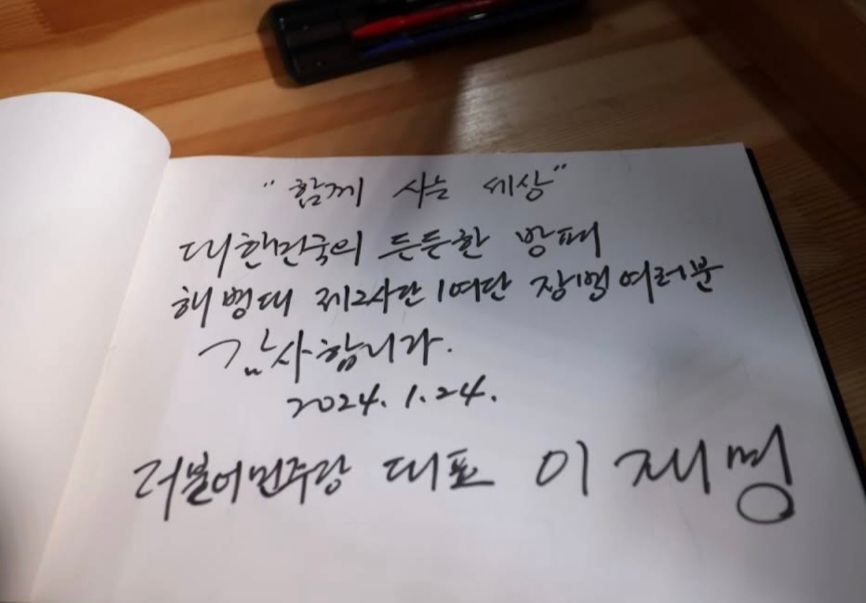 "함께 사는 세상"
대한민국의 든든한 방패
해병대 제2사단 1여단 장병여러분
감사합니다.
2024. 1. 24.
더불어민주당 대표 이재명